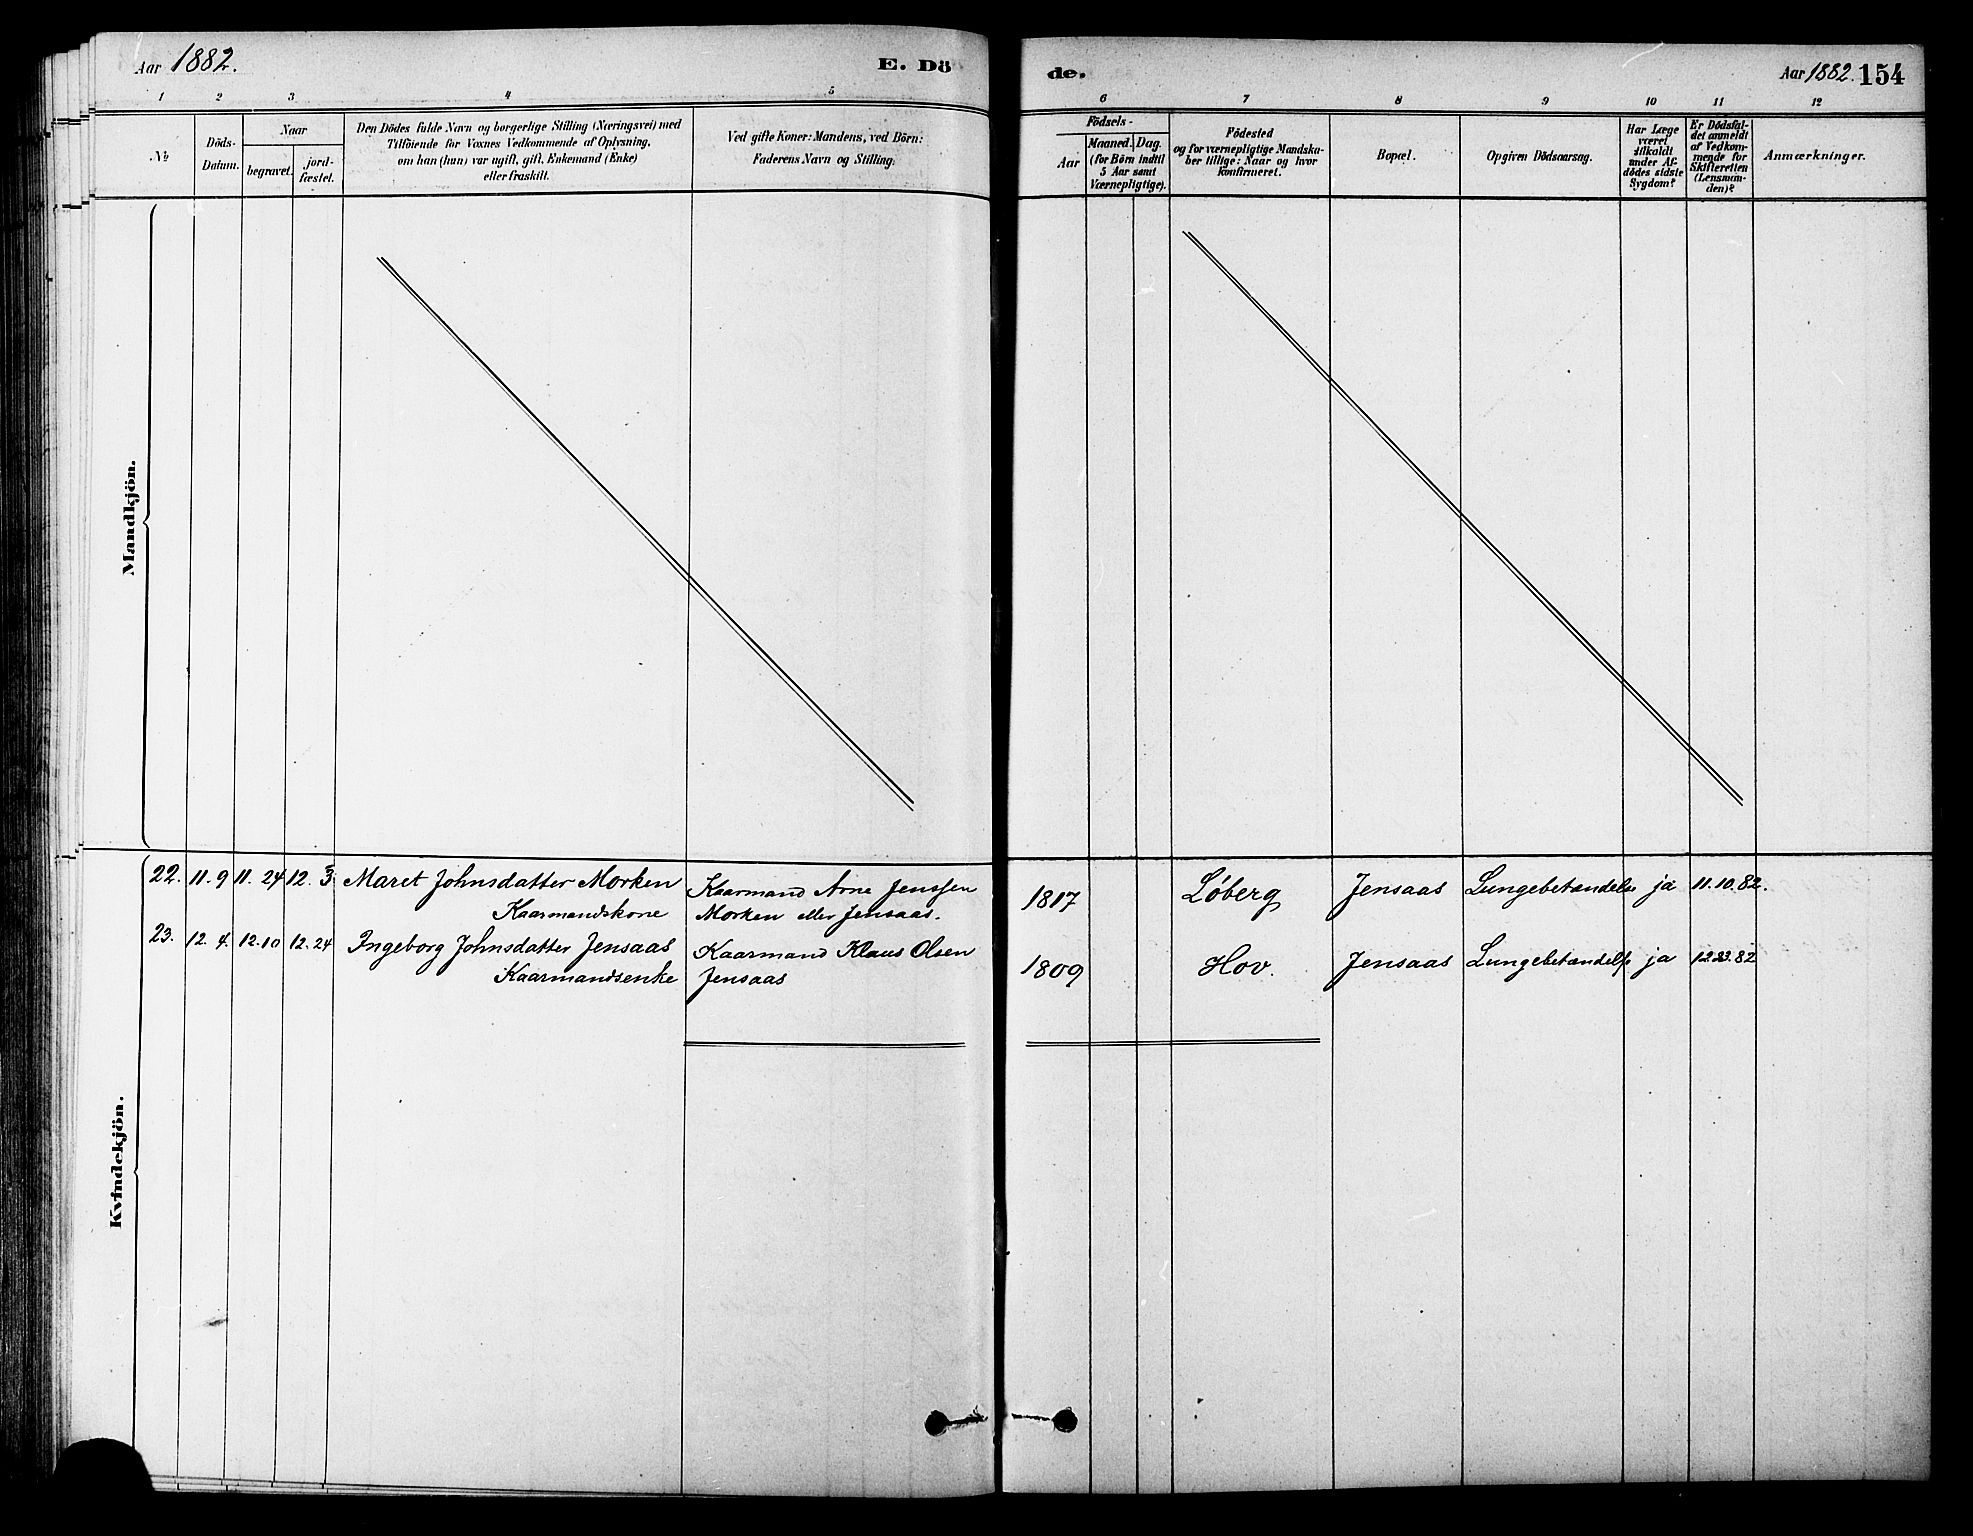 Aar 1882.
E. Dö
de.
Aar 1882. 154
1 2 3 4 5
6 7 8 9 10 11 12
№
Döds-
Datum.
Naar
begravet.
jord-
fæstet.
Den Dödes fulde Navn og borgerlige Stilling (Næringsvei) med
Tilföiende for Voxnes Vedkommende af Oplysning,
om han (hun) var ugift, gift, Enkemand (Enke)
eller fraskilt.
Ved gifte Koner: Mandens, ved Börn:
Faderens Navn og Stilling.
Födsels-
Aar
Maaned. Dag.
(for Börn indtil
5 Aar samt
Værnepligtige).
Födested
og for værnepligtige Mandska-
ber tillige: Naar og hvor
konfirmeret.
Bopæl.
Opgiven Dödsaarsag.
Har Læge
været
tilkaldt
under Af-
dödes sidste
Sygdom?
Er Dödsfal-
det anmeldt
af Vedkom-
mende for
Skifteretten
(Lensman-
den)?
Anmærkninger.
Mandkjön.
Kvindekjön.
22. 11. 9 11. 24 12. 3 Maret Johnsdatter Morken Kaarmand Arne Jenssen 1817 Løberg Jensaas Lungebetændelse ja 11.10.82.
Kaarmandskone Morken eller Jensaas.
23. 12. 4. 12. 10 12. 24 Ingeborg Johnsdatter Jensaas Kaarmand Klaus Olsen 1809 Hov. Jensaas Lungebetændelse ja 12.23.82
Kaarmandsenke Jensaas